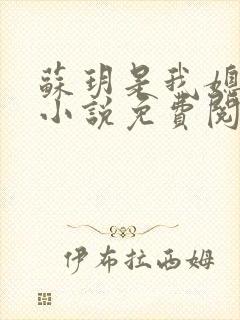 蘇玥是我媳
小說免費閱
伊布拉西姆